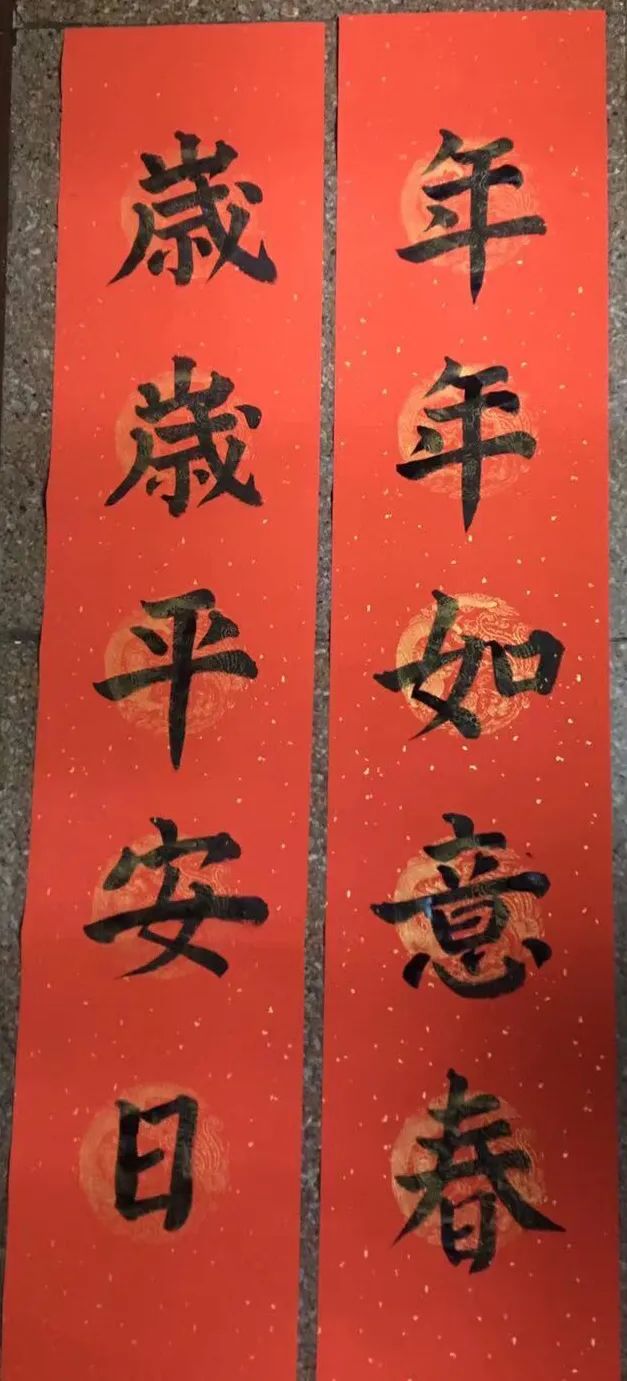 年年如意春
歳歳平安日